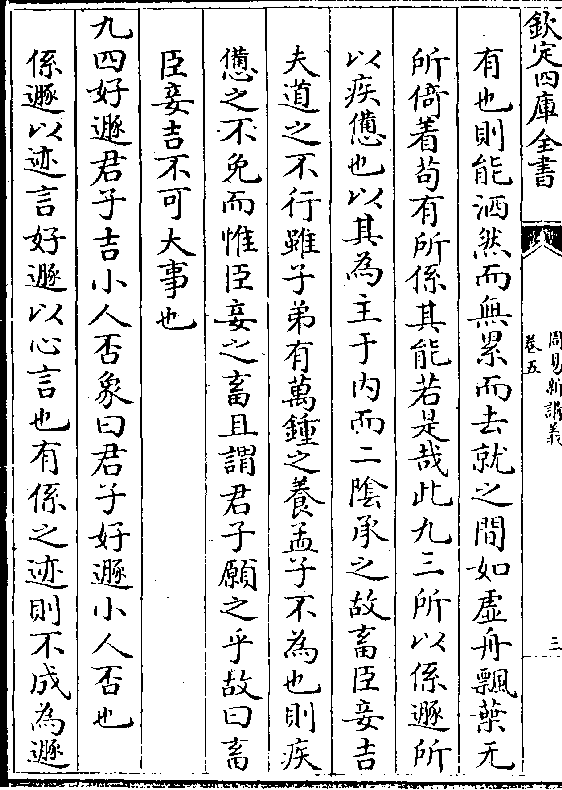 欽定四庫全書
周易新講義
卷五
三
有也則能洒然而無累而去就之間如虛舟飄葉无
所倚着苟有所係其能若是哉此九三所以係遯所
以疾憊也以其為主于内而二陰承之故畜臣妾吉
夫道之不行雖子弟有萬鍾之養孟子不為也則疾
憊之不免而惟臣妾之畜且謂君子願之乎故曰畜
臣妾吉不可大事也
九四好遯君子吉小人否象曰君子好遯小人否也
係遯以迹言好遯以心言也有係之迹則不成為遯